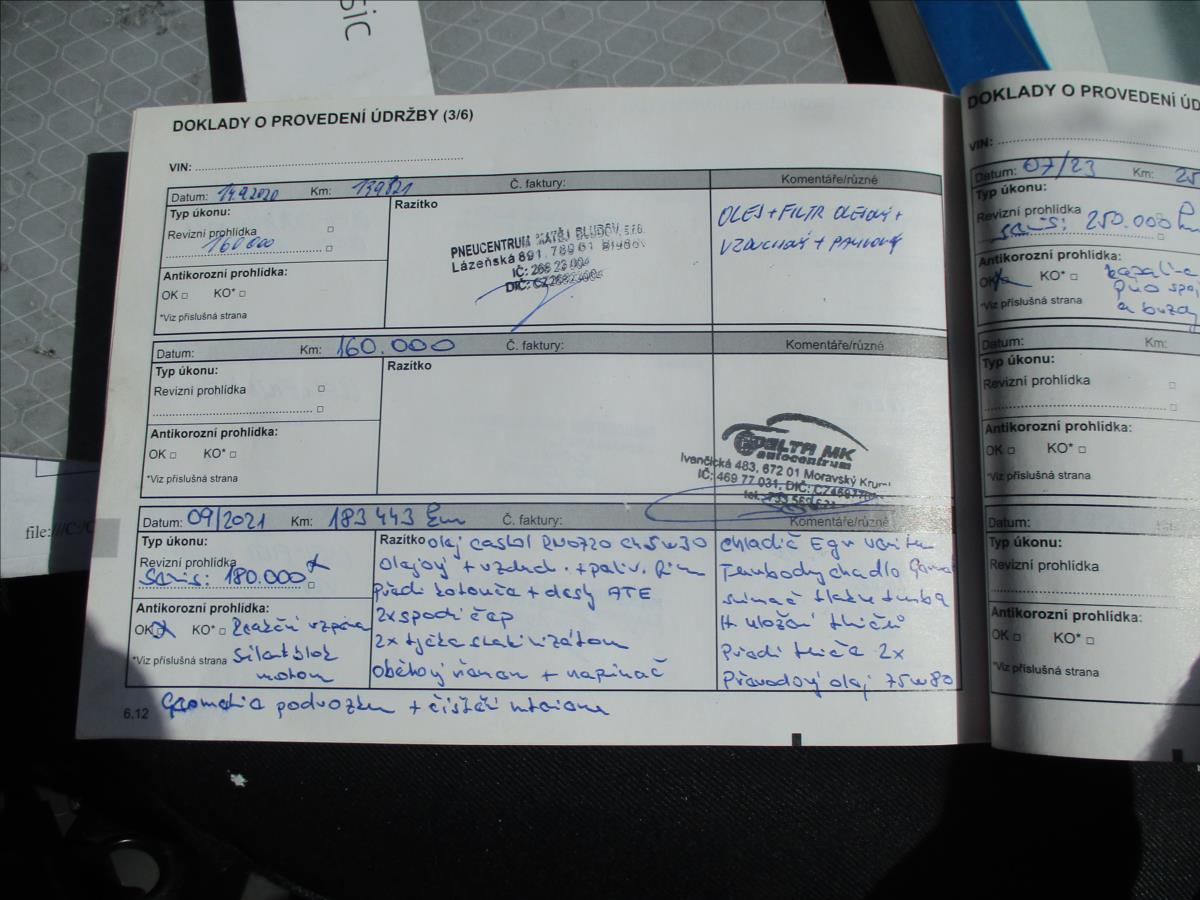 sic
DOKLADY O PROVEDENÍ ÚDRŽBY (3/6)
VIN:
Datum: 14.9.2020 Km: 139821 Č. faktury: Komentáře/různé
Typ úkonu:
Revizní prohlídka
160 000
Antikorozní prohlídka:
OK KO*
*Viz příslušná strana
Razítko
PNEUCENTRUM MATĚJ BLUDOV, s.r.o.
Lázeňská 891, 789 61 Bludov
IČ: 268 23 004
DIČ: CZ26823004
OLEJ + FILTR OLEJOVÝ +
VZDUCHOVÝ + PALIVOVÝ
Datum: Km: 160.000 Č. faktury: Komentáře/různé
Typ úkonu:
Revizní prohlídka
Antikorozní prohlídka:
OK KO*
*Viz příslušná strana
Razítko
DELTA MK
autocentrum
Ivančická 483, 672 01 Moravský Kruml
IČ: 469 77 031, DIČ:
tel.
Datum: 09/2021 Km: 183 443 km Č. faktury: Komentáře/různé
Typ úkonu:
Revizní prohlídka
Servis: 180.000
Antikorozní prohlídka:
OK KO* Reakční vzpěra
*Viz příslušná strana silentblok
motoru
Razítko olej castrol RN0720 5w30
olejový + vzduch. + paliv. filtr
Přední kotouče + desky ATE
2x spodní čep
2x tyčka stabilizátoru
oběhový řemen + napínač
chladič Egr
Turbodychadlo
snímač tlaku turba
H uložení tlmičů
Přední tlmiče 2x
Převodový olej 75w80
Geometrie podvozku + čištění interiéru
6.12
DOKLADY O PROVEDENÍ ÚD
VIN:
Datum: 07/23 Km: 25
Typ úkonu:
Revizní prohlídka
servis: 250.000 km
Antikorozní prohlídka:
OK KO* kapalina
*Viz příslušná strana
a brzdy
Datum: Km:
Typ úkonu:
Revizní prohlídka
Antikorozní prohlídka:
OK KO*
*Viz příslušná strana
Datum:
Typ úkonu:
Revizní prohlídka
Antikorozní prohlídka:
OK KO*
*Viz příslušná strana
file:///C:/